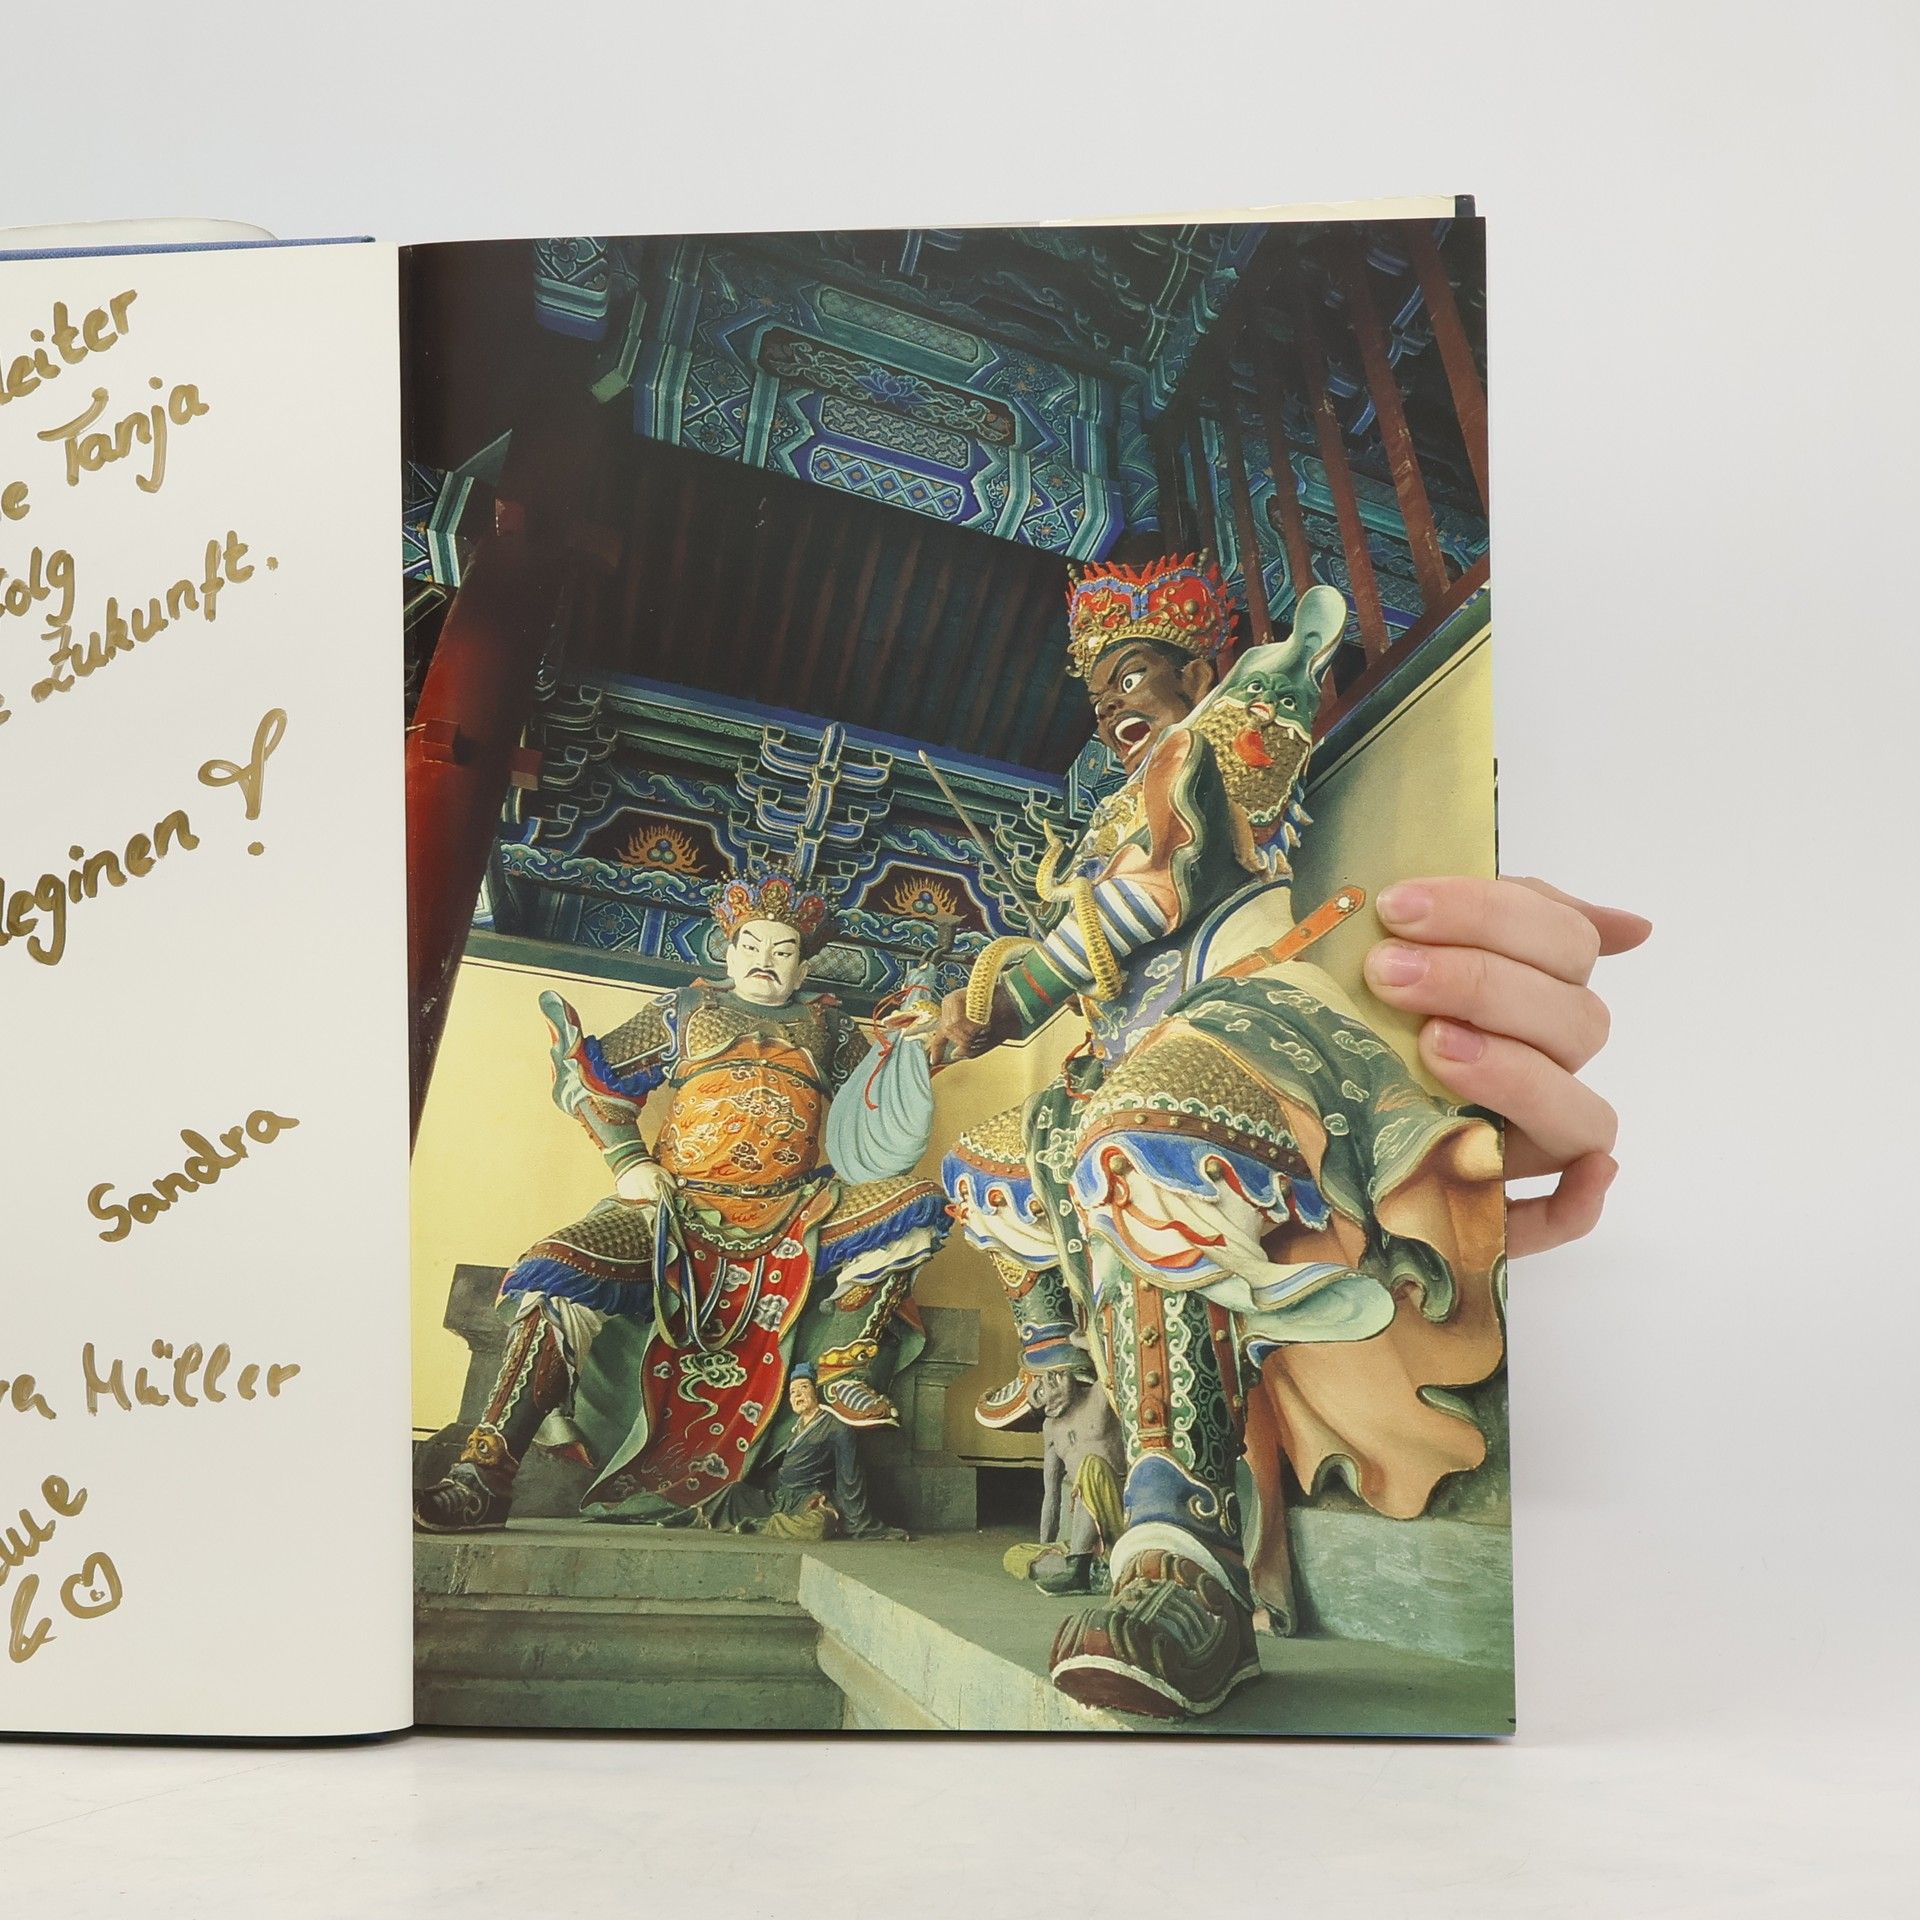 leiter
e Tanja
olg
Zukunft.
leginen!
Sandra
ra Müller